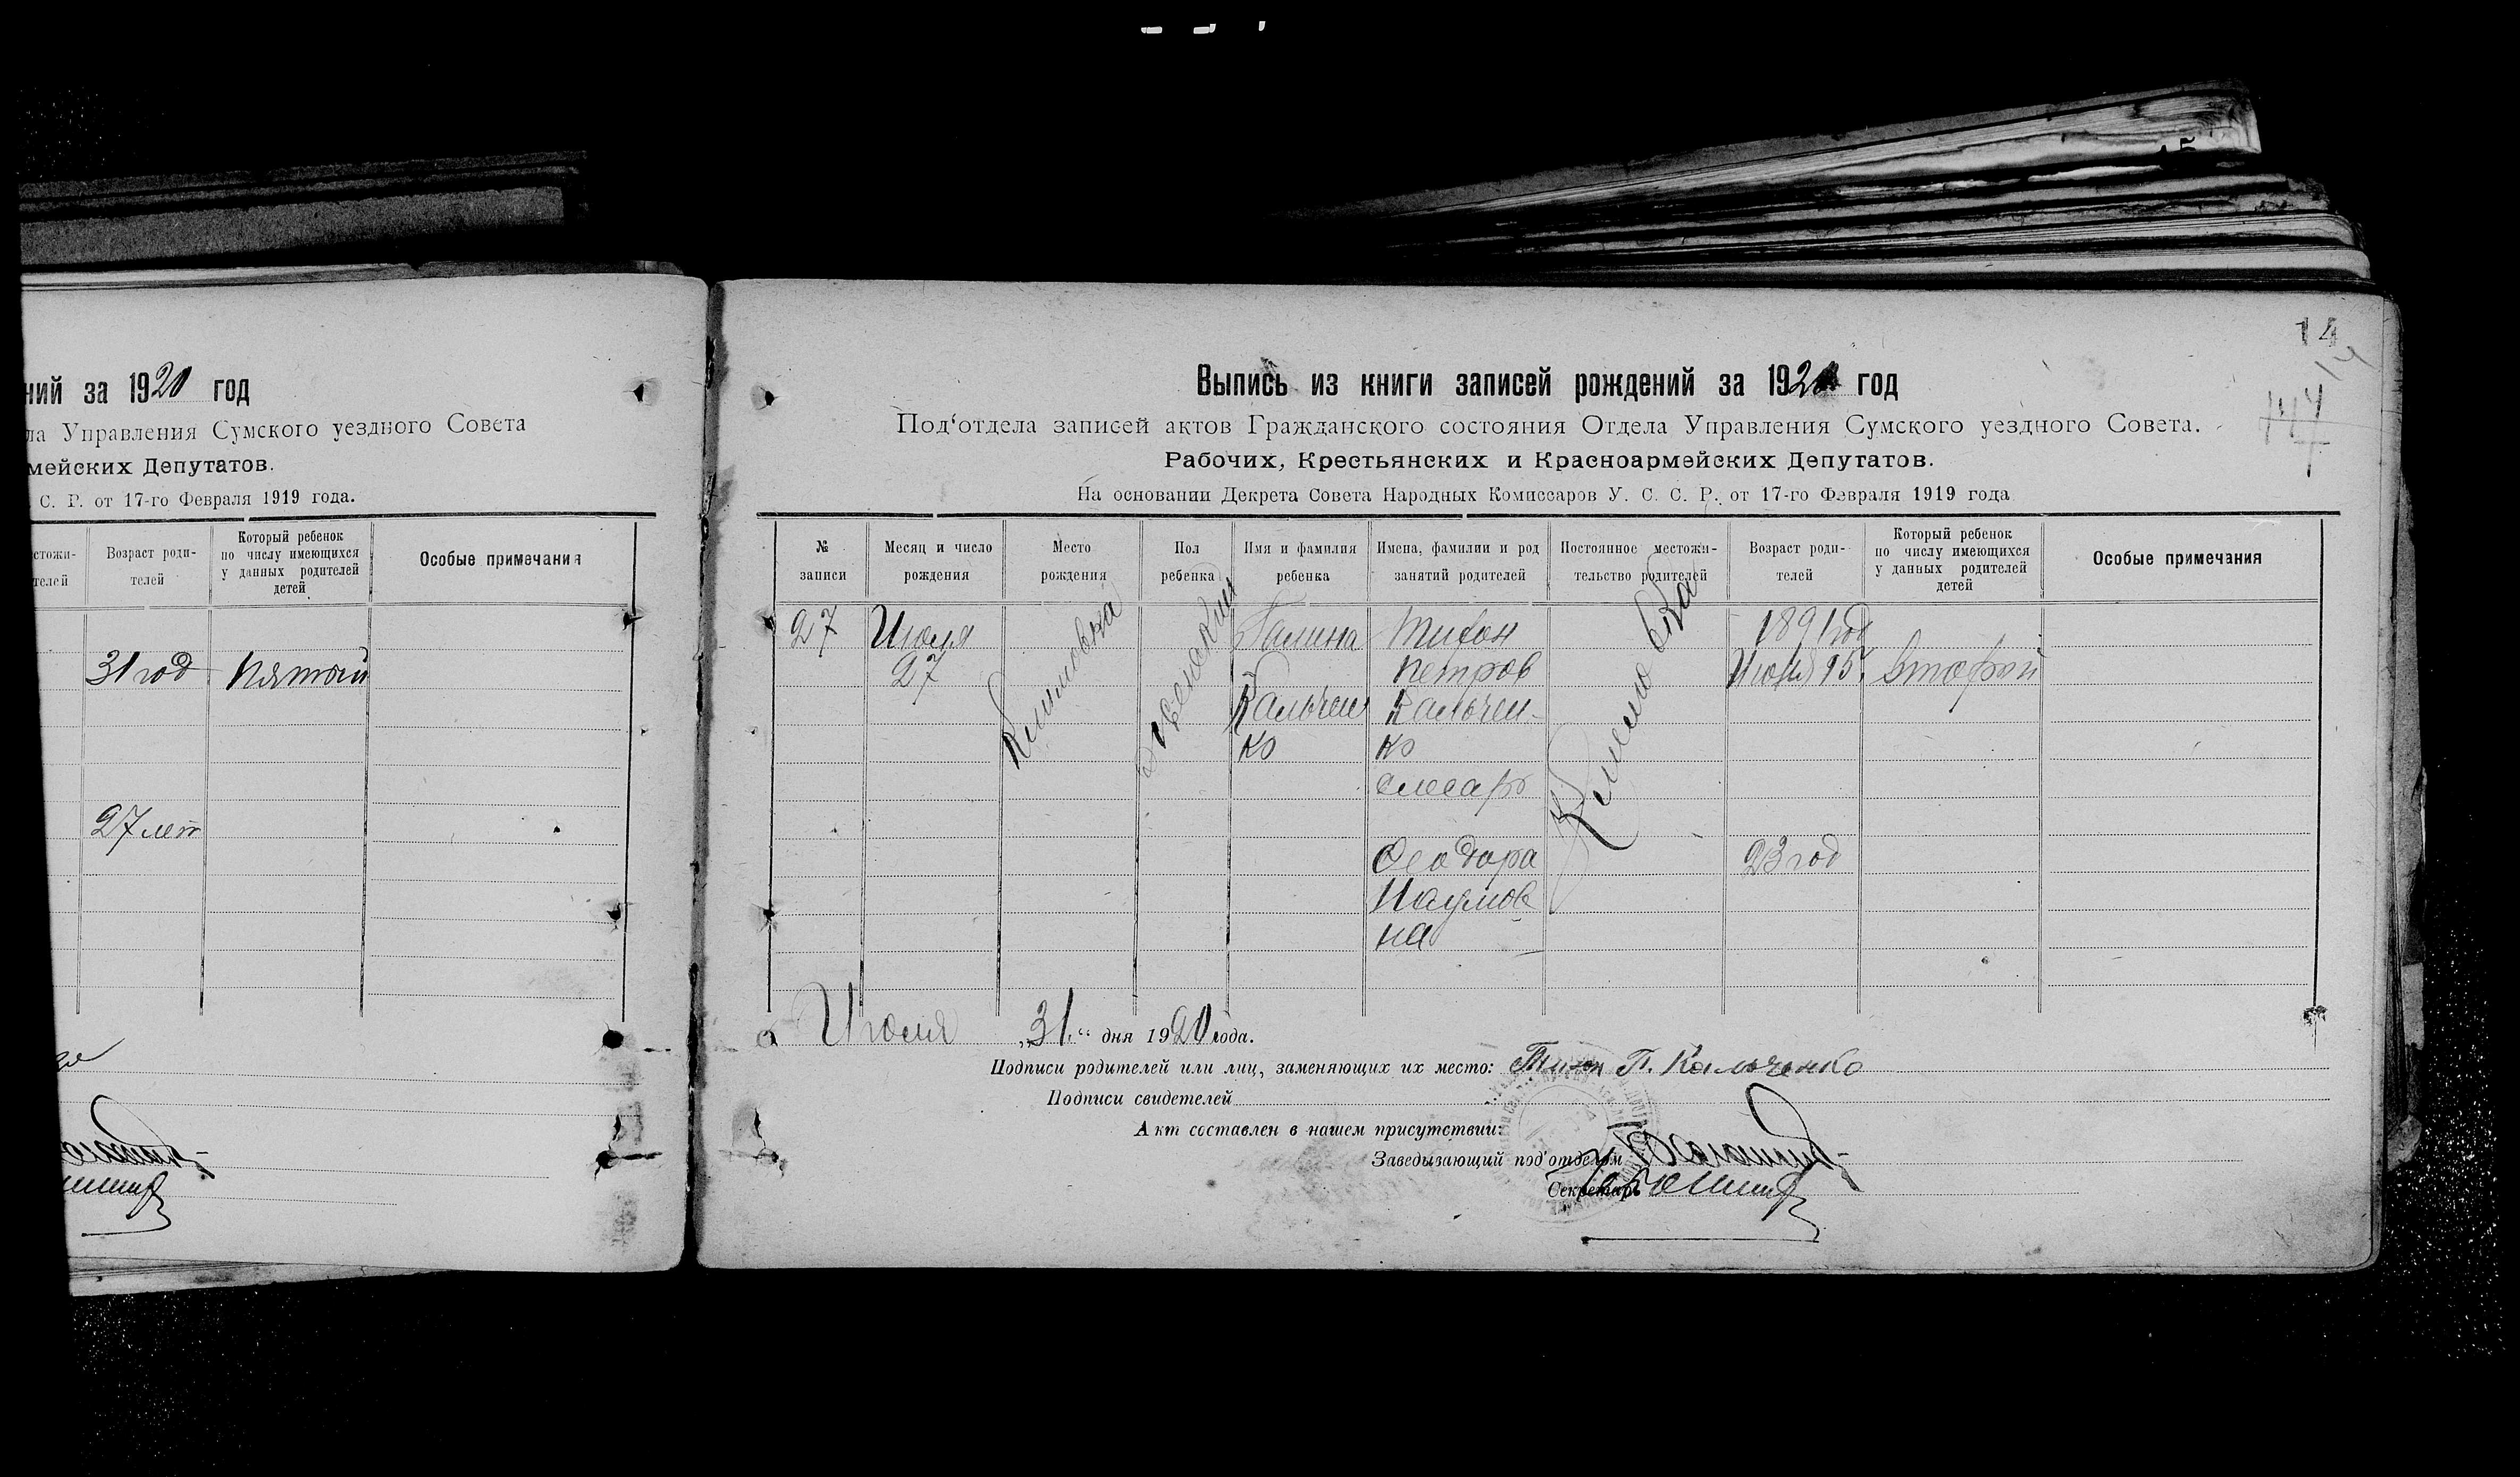 ний за 1920 год
ла Управления Сумского уездного Совета
мейских Депутатов.
С. Р. от 17-го Февраля 1919 года.
стожи-
телей
Возраст роди-
телей
Который ребенок
по числу имеющихся
у данных родителей
детей
Особые примечания
31 год
Пятый
27 лет
14
14
Выпись из книги записей рождений за 1920 год
Под‘отдела записей актов Гражданского состояния Отдела Управления Сумского уездного Совета.
Рабочих, Крестьянских и Красноармейских Депутатов.
На основании Декрета Совета Народных Комиссаров У. С. С. Р. от 17-го Февраля 1919 года
№
записи
Месяц и число
рождения
Место
рождения
Пол
ребенка
Имя и фамилия
ребенка
Имена, фамилии и род
занятий родителей
Постоянное местожи-
тельство родителей
Возраст роди-
телей
Который ребенок
по числу имеющихся
у данных родителей
детей
Особые примечания
27
Июля
27
женский
Галина
Кальчен
ко
Тихон
Петров
Кальчен-
ко
слесарь
Феодора
Наумов
на
1891 год
Июня 15
23 год
второй
Июля „31“ дня 1920 года.
Подписи родителей или лиц, заменяющих их место: Тихон П. Кальченко
Подписи свидетелей
Акт составлен в нашем присутствии:
Заведывающий под‘отделом
Секретарь